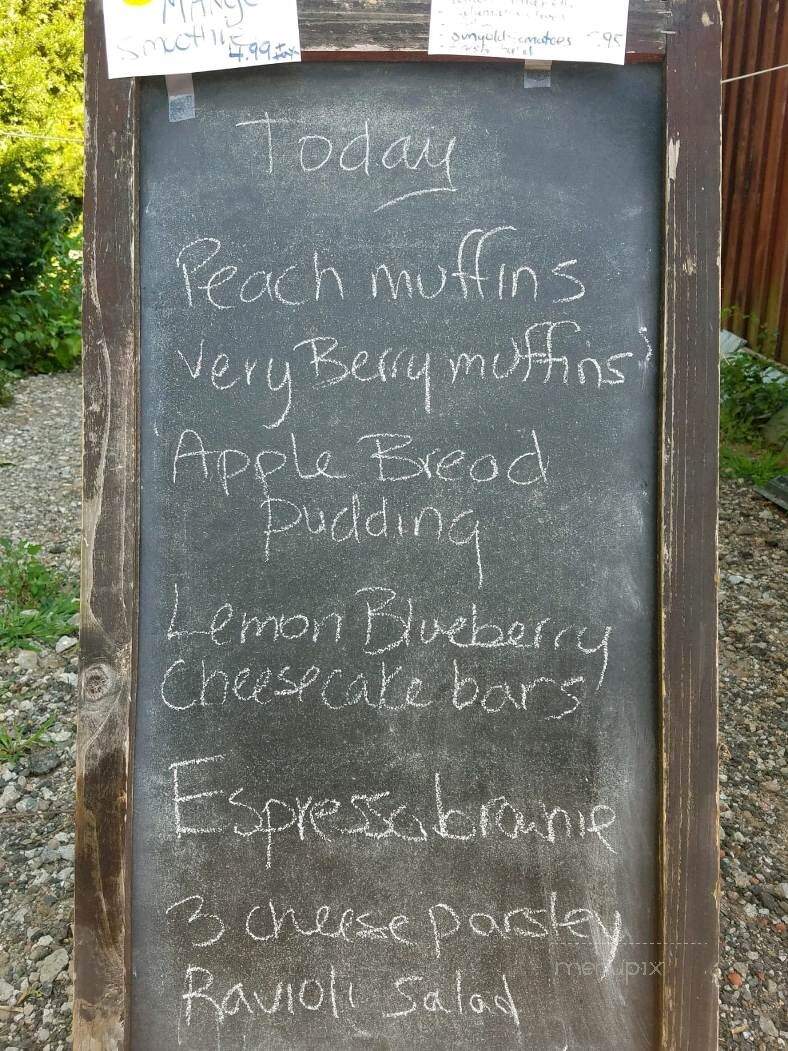 Mango
Smoothie
4.99 + tax
.95
Today
Peach muffins
Very Berry muffins
Apple Bread
Pudding
Lemon Blueberry
Cheesecake bars
Espresso brownie
3 cheese parsley
Ravioli Salad
menupix